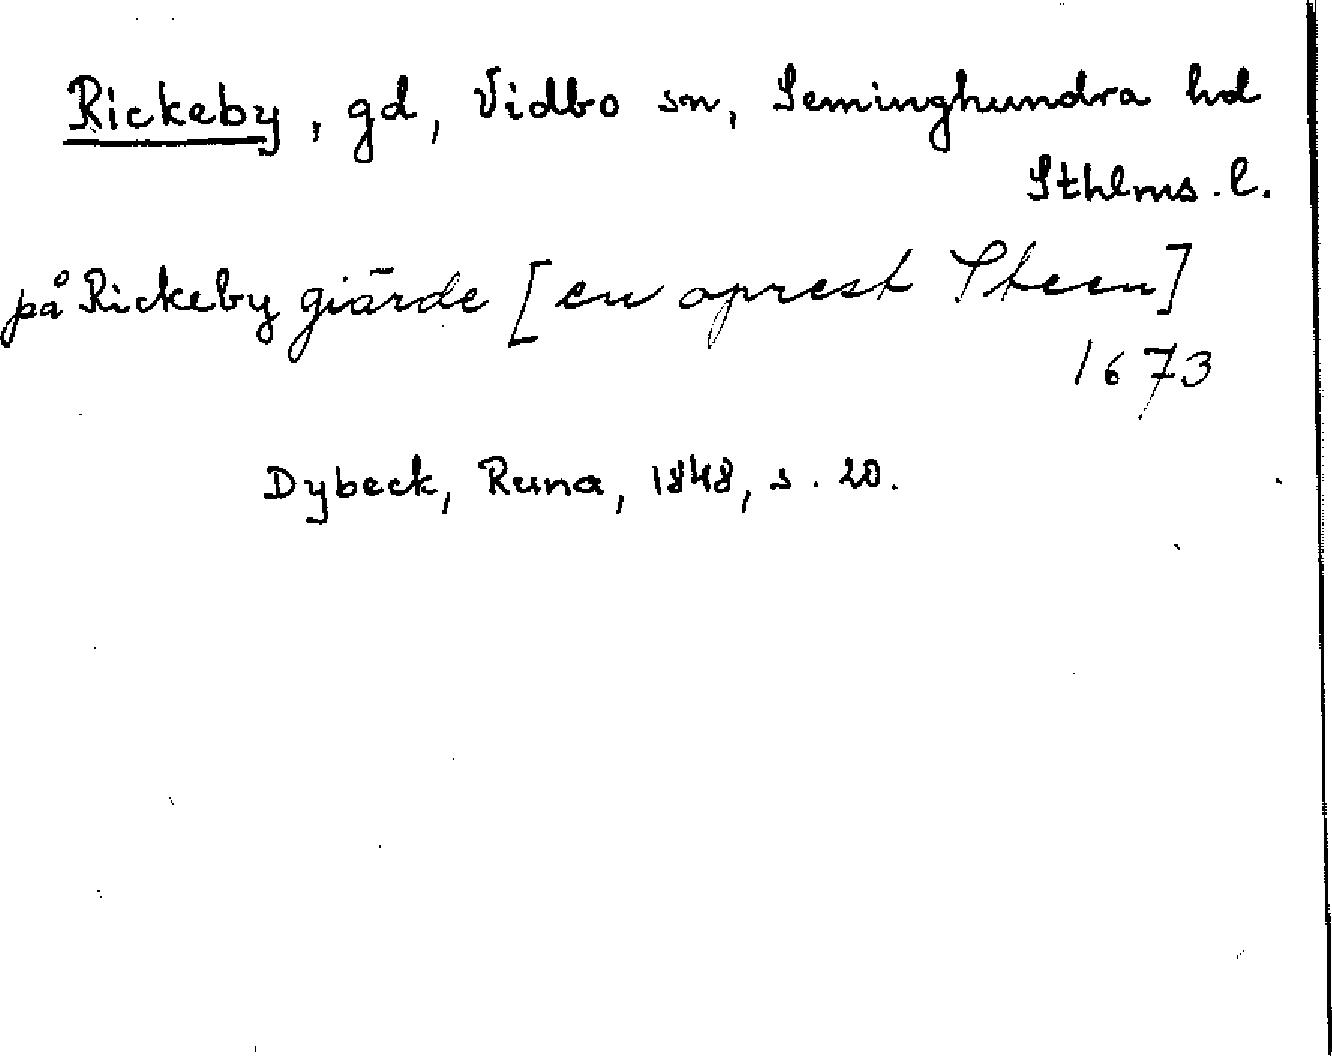 Rickeby, gd, Vidbo sn, Seminghundra hd
Sthlms. l.
på Rickeby giärde [en oprest Steen]
1673
Dybeck, Runa, 1848, s. 20.